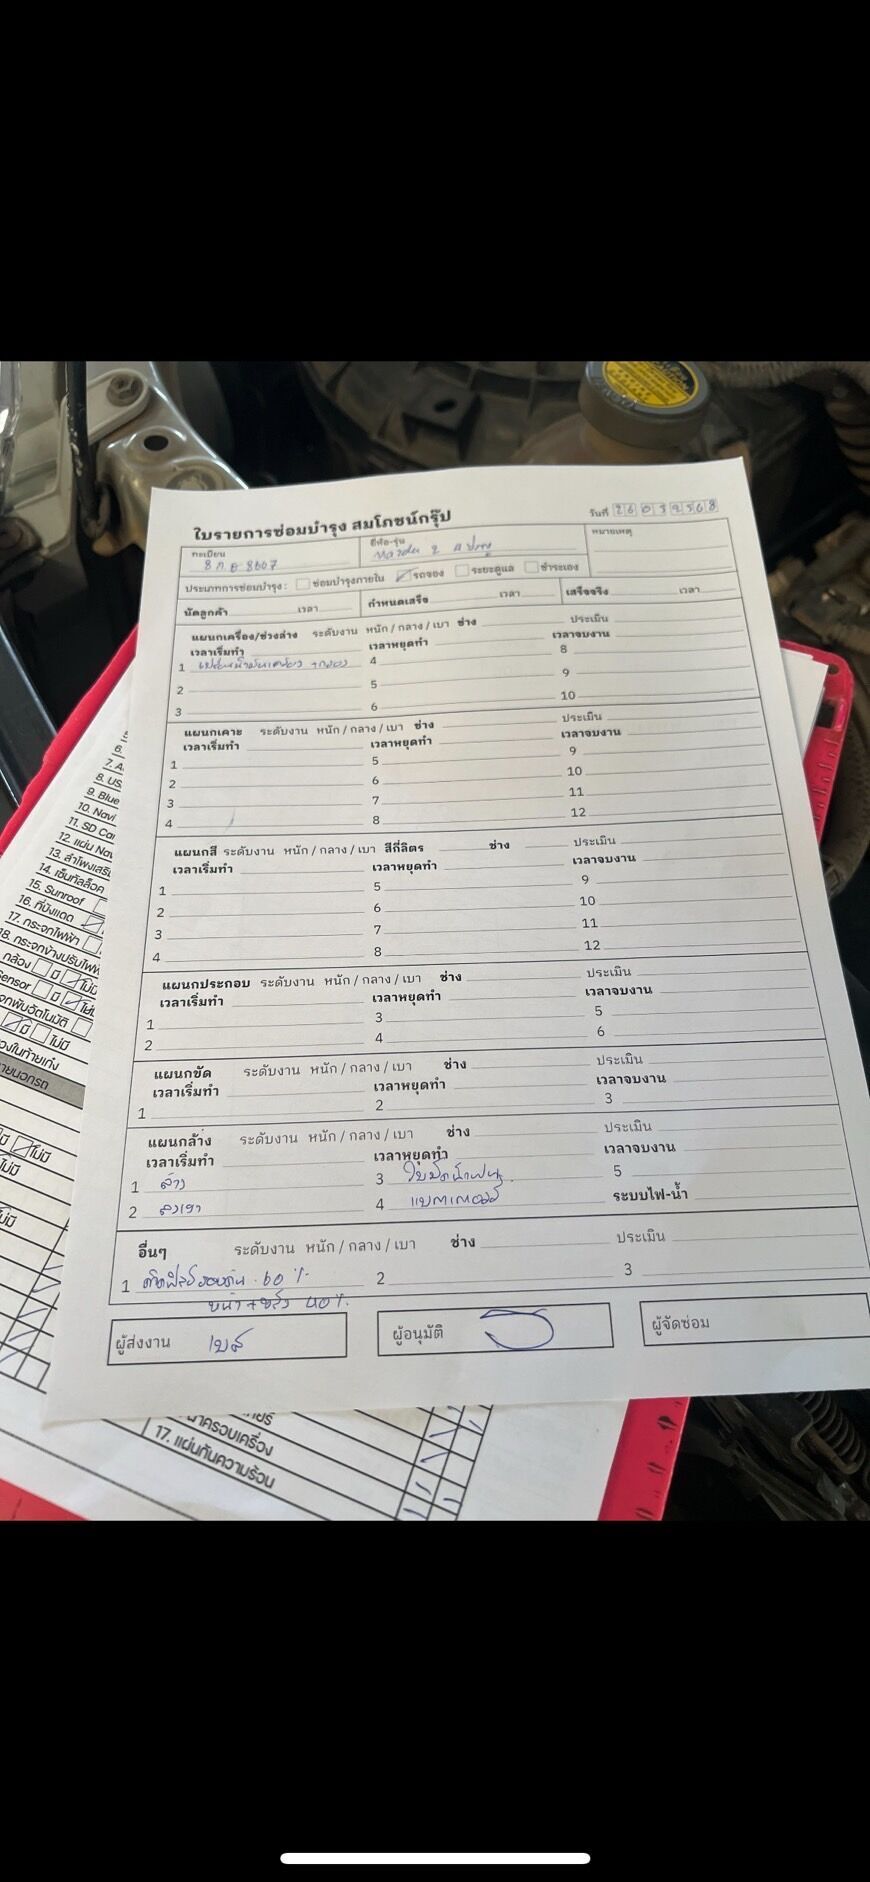 ใบรายการซ่อมบำรุง สมโภชน์กรุ๊ป
วันที่ 26032568
ทะเบียน
ยี่ห้อ-รุ่น
หมายเหตุ
8607
2
ประเภทการซ่อมบำรุง : ซ่อมบำรุงภายใน รถจอง ระยะดูแล ชำระเอง
นัดลูกค้า เวลา กำหนดเสร็จ เวลา เสร็จจริง เวลา
แผนกเครื่อง/ช่วงล่าง ระดับงาน หนัก / กลาง / เบา ช่าง ประเมิน
เวลาเริ่มทำ เวลาหยุดทำ เวลาจบงาน
1 4 8
2 5 9
3 6 10
แผนกเคาะ ระดับงาน หนัก / กลาง / เบา ช่าง ประเมิน
เวลาเริ่มทำ เวลาหยุดทำ เวลาจบงาน
1 5 9
2 6 10
3 7 11
4 8 12
แผนกสี ระดับงาน หนัก / กลาง / เบา สีกี่ลิตร ช่าง ประเมิน
เวลาเริ่มทำ เวลาหยุดทำ เวลาจบงาน
1 5 9
2 6 10
3 7 11
4 8 12
แผนกประกอบ ระดับงาน หนัก / กลาง / เบา ช่าง ประเมิน
เวลาเริ่มทำ เวลาหยุดทำ เวลาจบงาน
1 3 5
2 4 6
แผนกขัด ระดับงาน หนัก / กลาง / เบา ช่าง ประเมิน
เวลาเริ่มทำ เวลาหยุดทำ เวลาจบงาน
1 2 3
แผนกล้าง ระดับงาน หนัก / กลาง / เบา ช่าง ประเมิน
เวลาเริ่มทำ เวลาหยุดทำ เวลาจบงาน
1 ล้าง 3 ใบปัดน้ำฝน 5
2 ลงเงา 4 แบตเตอรี่ ระบบไฟ-น้ำ
อื่นๆ ระดับงาน หนัก / กลาง / เบา ช่าง ประเมิน
1 ติดฟิล์มรอบคัน 60 % 2 3
หน้า + หลัง 40 %
ผู้ส่งงาน เบส ผู้อนุมัติ ผู้จัดซ่อม
13. ลำโพงเสริม
14. เซ็นทัลล็อค
15. Sunroof
16. ที่บังแดด
17. กระจกไฟฟ้า
18. กระจกข้างปรับไฟฟ้า
กล้อง มี ไม่มี
มี ไม่มี
17. แผ่นกันความร้อน